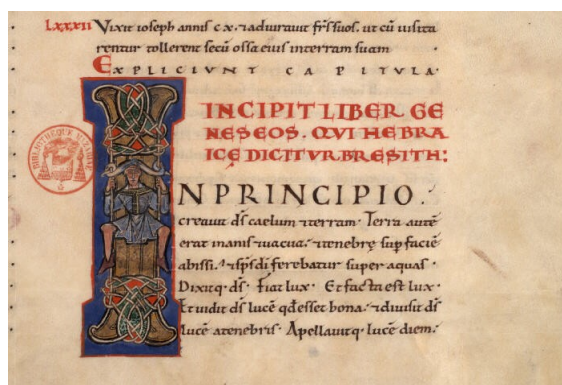 Lxxxii Vixit ioseph annis c x. ⁊adiurauit fr̄s suos. ut cū uisita
rentur tollerent secū ossa eius interram suam
EXPLICIVNT CAPITVLA.
INCIPIT LIBER GE
NESEOS. QVI HEBRA
ICĘ DICITVR BRESITH:
BIBLIOTHEQUE MAZARINE
INPRINCIPIO.
creauit d̄s caelum ⁊terram. Terra autē
erat inanis ⁊uacua. ⁊tenebrę sup faciē
abissi. ⁊sp̄s di ferebatur super aquas.
Dixitq. d̄s. Fiat lux. Et facta est lux.
Et uidit d̄s lucē qđ esset bona. ⁊diuisit d̄s
lucē atenebris. Apellauitq. lucē diem.